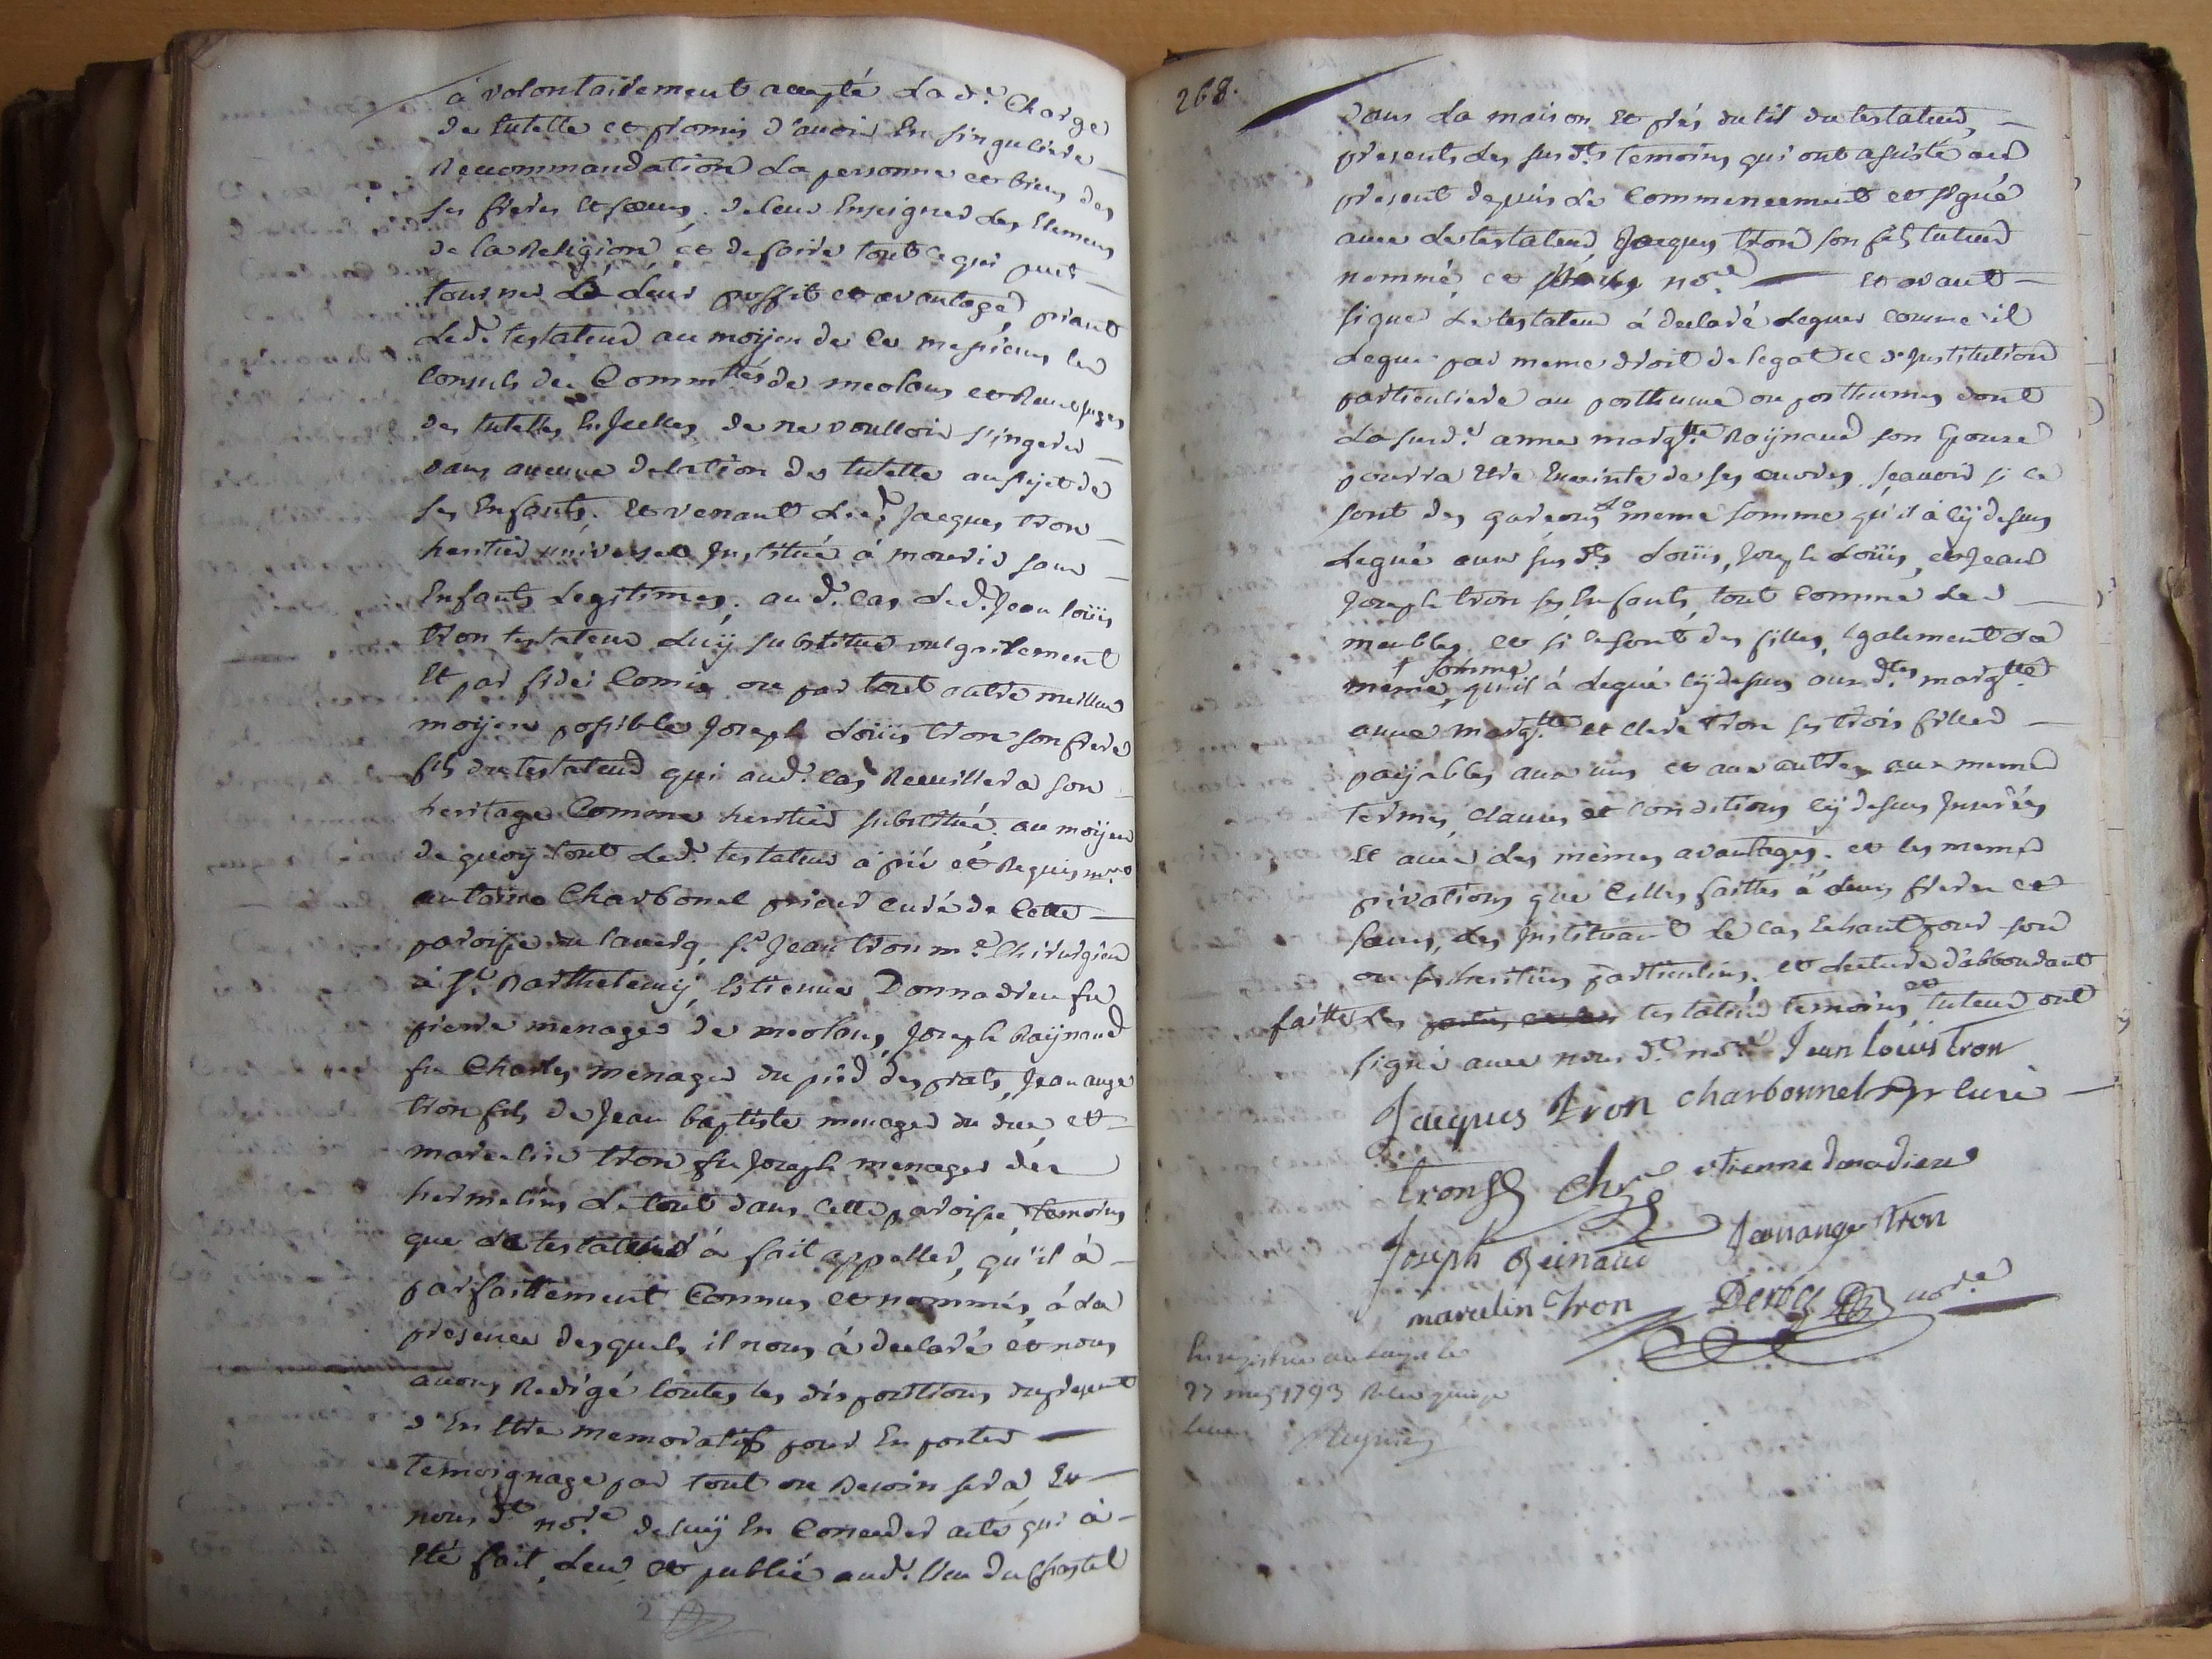 à volontairement accepté La d.e Charge
de tutelle et promis d'avoir En singuliere
Recommandation La personne et biens des
ses freres et sœurs. de leur Enseigner Les Elemens
de la Religion, et de faire tout ce qui peut
tourner à Leur proffit et avantage, priant
Led. testateur au moÿen de ce messieurs les
Consuls des Comm.tés de meolans et Revel juges
des tutelles Enjcelles de ne voulloir s'ingerer
dans aucune delation de tutelle au sujet de
ses Enfants. Et venant Led. Jacques tron
heritier universel Jnstitué à mourir sans
Enfants Legitimes. aud. Cas Led. Jean loüis
tron testateur Luÿ substitue vulgairement
Et par fidei Comis ou par tout autre meilleur
moÿen possible Joseph Loüis tron son frere
fils du testateur qui aud. Cas Recuillera son
heritage Comme heritier substitué. au moÿen
de quoÿ tout Led. testateur a prié et Requis m.re
antoine Charbonel prieur curé de Cette
paroisse du laverq, s.r Jean tron m.e Chirurgien
à S.t Barthelemÿ, Estienne Donnadieu fu
pierre menager de meolans, Joseph Raÿnaud
fu Charles menager du pied des prats, Jean ange
tron fils de Jean baptiste menager du duc, et
marcelin tron fu Joseph menager des
hermelins Le tout dans Cette paroisse, temoins
que Le testateur à fait appeller, qu'il à
parfaittement Connus et nommés, à La
presence desquels il nous à declaré et nous
avons Redigé toutes les dispositions du present
d'En Etre memoratifs pour En porter
temoignage par tout ou Besoin sera, Et
nous d.t no.re de luÿ En Conceder acte qui à
Eté fait, Leu, et publié aud. lieu du Chastel
268.
dans La maison et prés du lit du testateur,
presents Les susd.ts temoins qui ont assisté au
present depuis Le Commencement et signé
avec Le testateur Jacques tron son fils tuteur
nommé, et no.re Et avant
signer Le testateur à declaré Leguer comme il
Legue par meme droit de legat et d'Jnstitution
particuliere au posthume ou posthumes dont
La susd.e anne marg.te Raÿnaud son Epouse
pourra Etre Enceinte de ses œuvres, sçavoir si ce
sont des garçons La meme somme qu'il à cÿ dessus
Legué aux susd.ts Loüis, Joseph Loüis, et Jean
Joseph tron ses Enfants, tout Comme Les
meubles. et si ce sont des filles, Egalement La
meme somme qu'il à Legué cÿ dessus aux d.tes marg.te
anne marg.te et clere tron ses trois filles
païables aux uns et aux autres aux memes
termes, clauses et conditions cÿ dessus Jnserées
Et avec Les mèmes avantages. et les memes
privations que Celles faittes à Leurs freres et
sœurs, Les Jnstituant le cas Echeant pour ses
ou ses heritiers particuliers. et Lecture d'abbondant
faitte Les testateur temoins et tuteur ont
signé avec nous d.t no.re Jean Louis tron
Jacques tron charbonnel pr curé
tron chr.g etienne donadieu
Joseph Reinaud Jeanange tron
marcelin tron Derbez no.re
27 1793